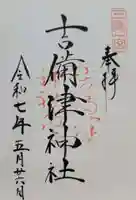 奉拝
吉備津神社
令和七年五月廿六日